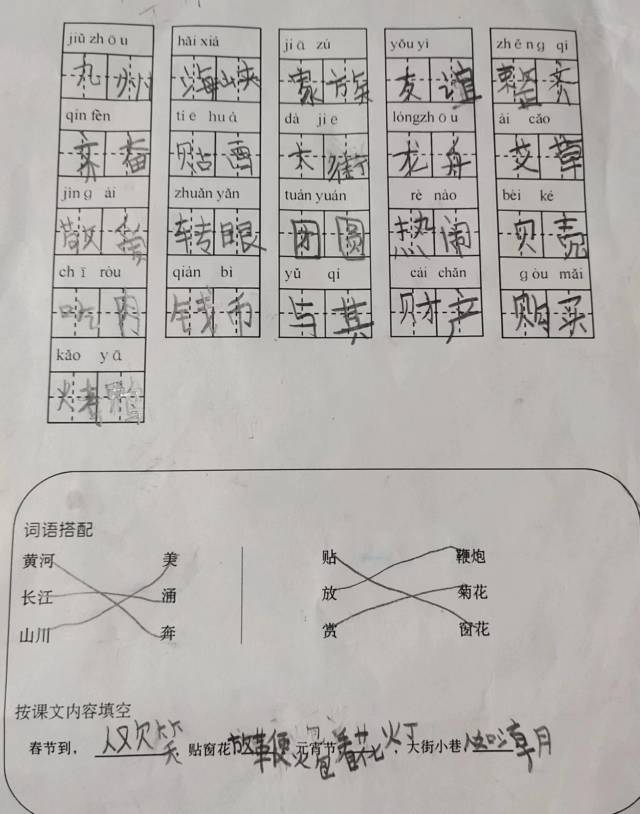 jiǔ zhōu hǎi xiá jiā zú yǒu yì zhěng qí
九州 海峡 家族 友谊 整齐
qín fèn tiē huà dà jiē lóng zhōu ài cǎo
贴画 大街 龙舟 艾草
jìng ài zhuǎn yǎn tuán yuán rè nào bèi ké
转眼 团圆 热闹 贝壳
chī ròu qián bì yǔ qí cái chǎn gòu mǎi
吃肉 钱币 与其 财产 购买
kǎo yā
烤鸭
词语搭配
黄河 美 贴 鞭炮
长江 涌 放 菊花
山川 奔 赏 窗花
按课文内容填空
春节到， 人欢笑 贴窗花 放鞭炮 元宵节 看花灯 ，大街小巷